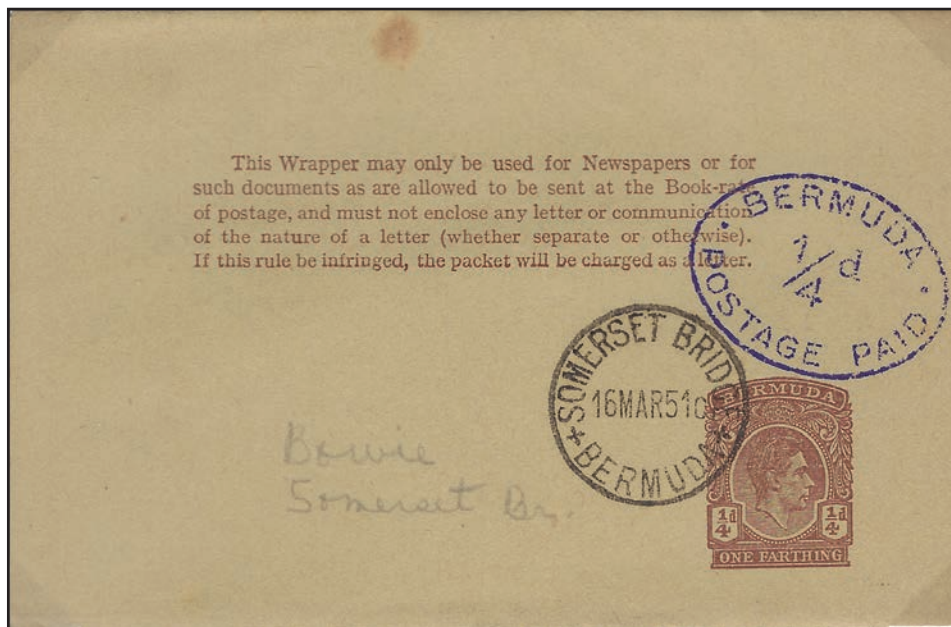 This Wrapper may only be used for Newspapers or for
such documents as are allowed to be sent at the Book-rate
of postage, and must not enclose any letter or communication
of the nature of a letter (whether separate or otherwise).
If this rule be infringed, the packet will be charged as a letter.
BERMUDA
1/4d
POSTAGE PAID
SOMERSET BRIDGE
16MAR51
BERMUDA
BERMUDA
1/4d 1/4d
ONE FARTHING
Bowie
Somerset Br.